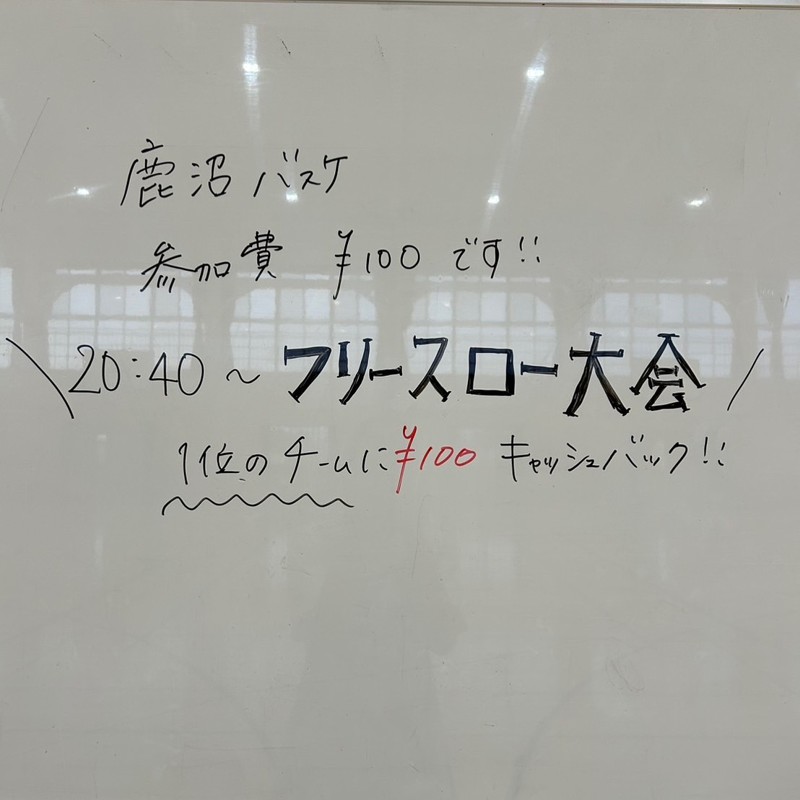 鹿沼バスケ
参加費 ¥100です!!
\20:40～フリースロー大会/
1位のチームに¥100キャッシュバック!!